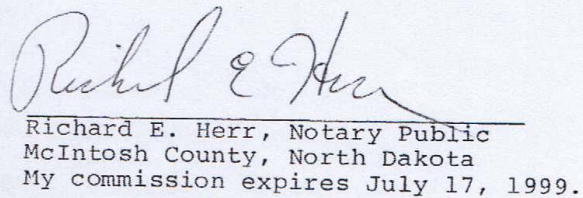 Richard E Herr
Richard E. Herr, Notary Public
McIntosh County, North Dakota
My commission expires July 17, 1999.